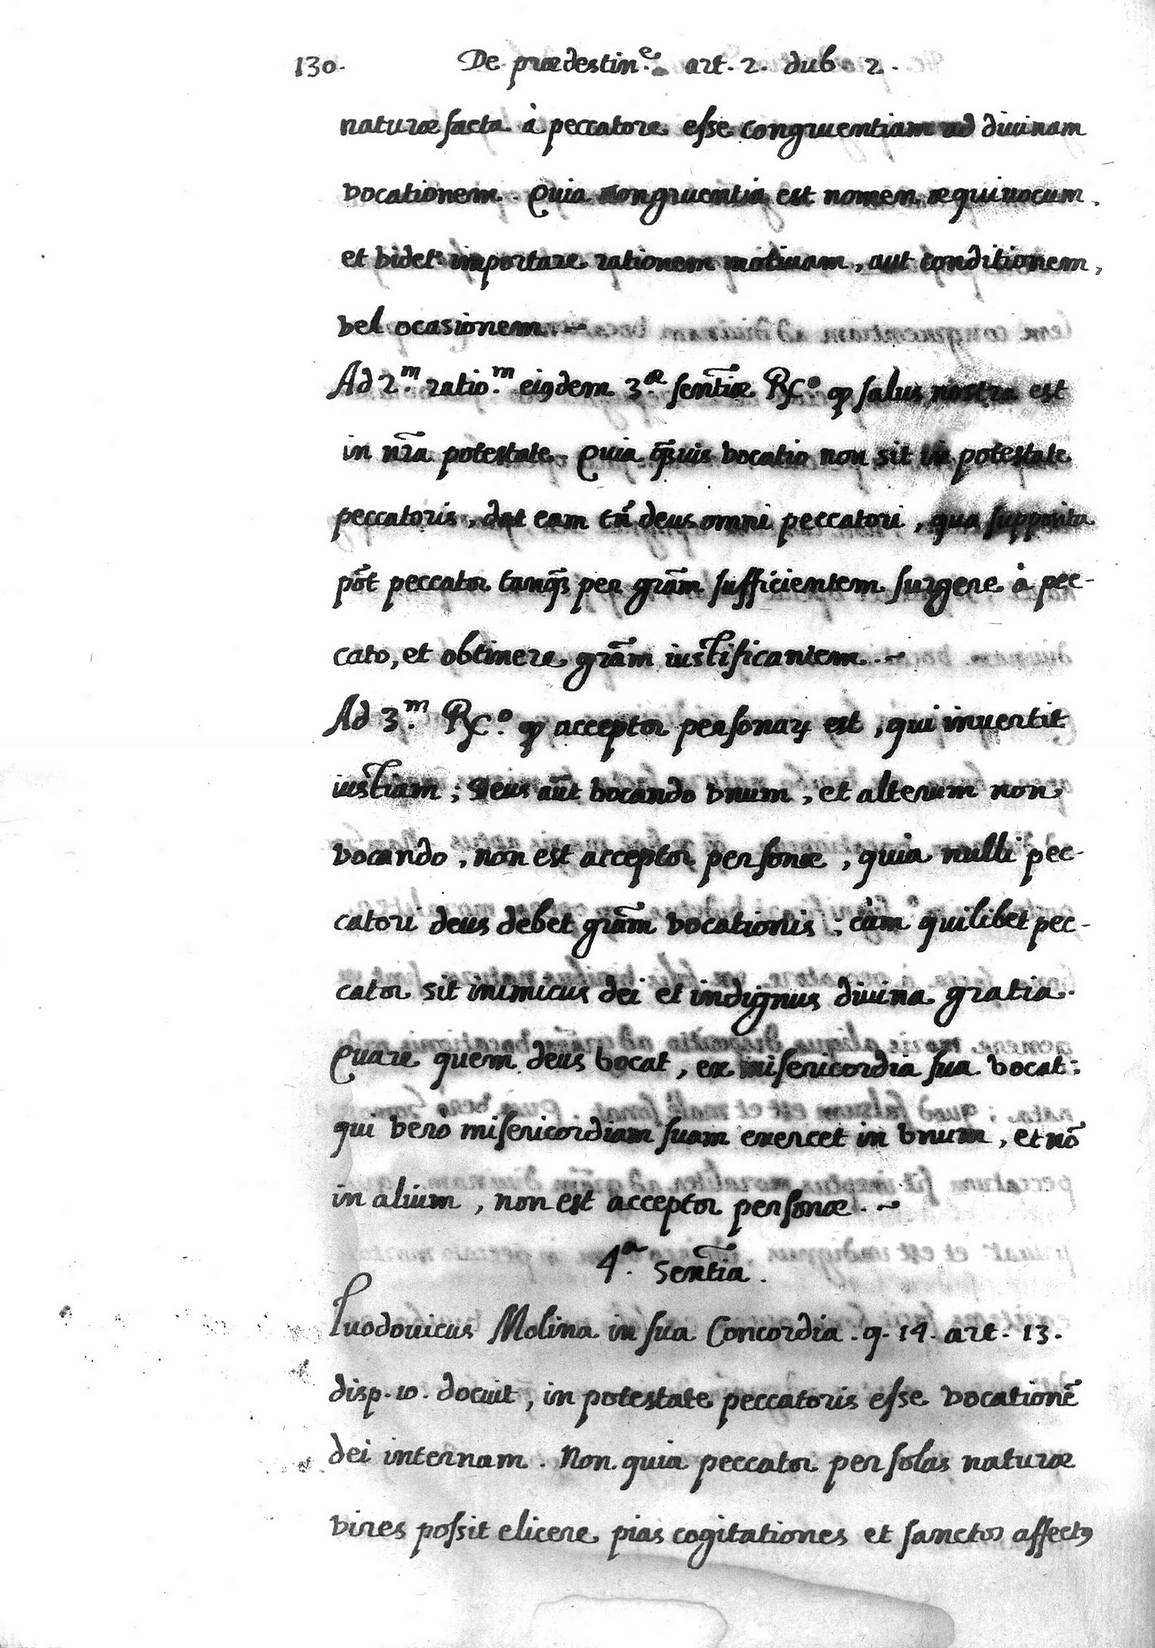 130. De prædestin.e art. 2. dub. 2.
naturæ facta à peccatore esse congruentiam ad diuinam
vocationem. Quia congruentia est nomen æquiuocum,
et videt.r importare rationem motiuam, aut conditionem,
vel ocasionem.~
Ad 2.m ratio.m eiꝰdem 3.æ sentiæ Rc.o qꝫ salus nostra est
in nr̃a potestate. Quia q̃uis vocatio non sit in potestate
peccatoris, dat eam tñ deus omni peccatori, qua supposita
põt peccator tanq̃ per grãm sufficientem surgere à pec-
cato, et obtinere grãm iustificantem.~
Ad 3.m Rc.o qꝫ acceptor personaꝝ est, qui inuertit
iustiam; Deus aũt vocando vnum, et alterum non
vocando, non est acceptor personæ, quia nulli pec-
catori deus debet grãm vocationis; cùm quilibet pec-
cator sit inimicus dei et indignus diuina gratia.
Quare quem deus vocat, ex misericordia sua vocat:
qui vero misericordiam suam exercet in vnum, et nõ
in alium, non est acceptor personæ.~
4.a Sentia.
Luodouicus Molina in sua Concordia. q. 14. art. 13.
disp. 10. docuit, in potestate peccatoris esse vocationẽ
dei internam. Non quia peccator per solas naturæ
vires possit elicere pias cogitationes et sanctos affectꝰ